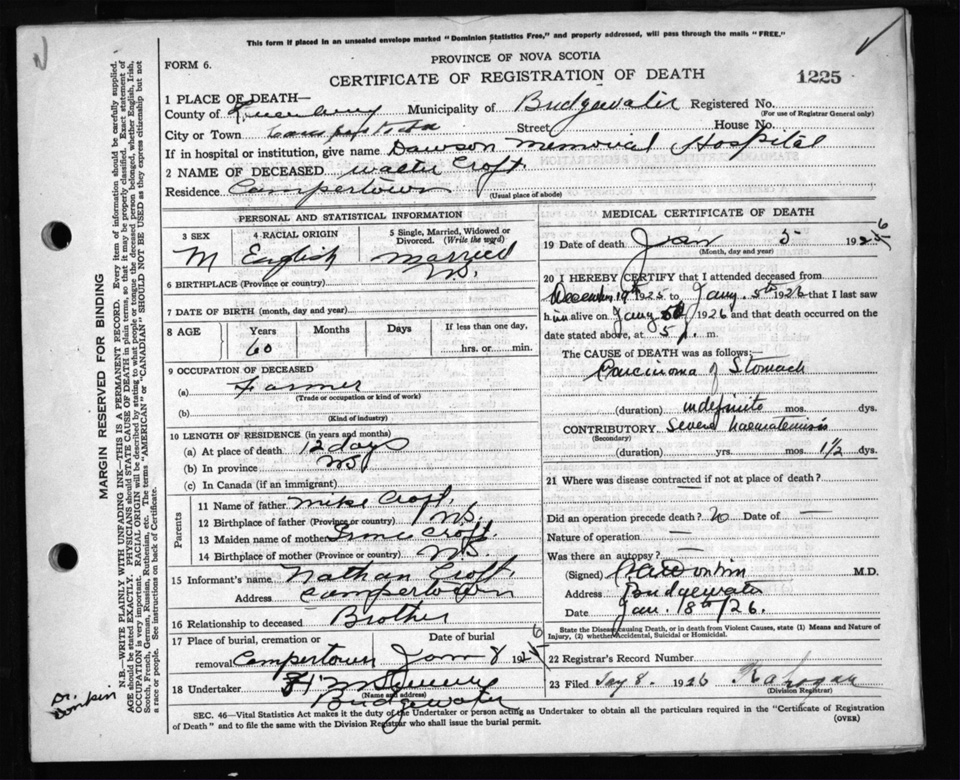 This form if placed in an unsealed envelope marked "Dominion Statistics Free," and properly addressed, will pass through the mails "FREE."
FORM 6.
PROVINCE OF NOVA SCOTIA
CERTIFICATE OF REGISTRATION OF DEATH
1225
1 PLACE OF DEATH—
County of Lunenburg Municipality of Bridgewater Registered No.
(For use of Registrar General only)
City or Town Street House No.
If in hospital or institution, give name Dawson Memorial Hospital
2 NAME OF DECEASED Walter Croft
Residence Campertown
(Usual place of abode)
PERSONAL AND STATISTICAL INFORMATION
3 SEX M
4 RACIAL ORIGIN English
5 Single, Married, Widowed or Divorced. (Write the word) Married
6 BIRTHPLACE (Province or country) N.S.
7 DATE OF BIRTH (month, day and year)
8 AGE Years Months Days If less than one day,
60 hrs. or min.
9 OCCUPATION OF DECEASED
(a) Farmer
(Trade or occupation or kind of work)
(b)
(Kind of industry)
10 LENGTH OF RESIDENCE (in years and months)
(a) At place of death 12 days
(b) In province N.S.
(c) In Canada (if an immigrant)
Parents
11 Name of father Mike Croft
12 Birthplace of father (Province or country) N.S.
13 Maiden name of mother Croft
14 Birthplace of mother (Province or country) N.S.
15 Informant's name Nathan Croft
Address Campertown
16 Relationship to deceased Brother
17 Place of burial, cremation or removal Campertown
Date of burial Jan 8 1926
18 Undertaker
(Name and address)
Bridgewater
MEDICAL CERTIFICATE OF DEATH
19 Date of death Jan 5 1926
(Month, day and year)
20 I HEREBY CERTIFY that I attended deceased from
December 19th 1925 to Jany. 5th 1926 that I last saw
him alive on Jany 1926 and that death occurred on the
date stated above, at 5 p. m.
The CAUSE of DEATH was as follows:—
Carcinoma of Stomach
(duration) indefinite mos. dys.
CONTRIBUTORY Severe haematemesis
(Secondary)
(duration) yrs. mos. 1½ dys.
21 Where was disease contracted if not at place of death? —
Did an operation precede death? No Date of —
Nature of operation —
Was there an autopsy? —
(Signed) M.D.
Address Bridgewater
Date Jan. 8th/26.
State the Disease causing Death, or in death from Violent Causes, state (1) Means and Nature of Injury, (2) whether Accidental, Suicidal or Homicidal.
22 Registrar's Record Number
23 Filed Jay 8. 1926
(Division Registrar)
SEC. 46—Vital Statistics Act makes it the duty of the Undertaker or person acting as Undertaker to obtain all the particulars required in the "Certificate of Registration of Death" and to file the same with the Division Registrar who shall issue the burial permit.
(OVER)
MARGIN RESERVED FOR BINDING
N.B.—WRITE PLAINLY WITH UNFADING INK—THIS IS A PERMANENT RECORD. Every item of information should be carefully supplied.
AGE should be stated EXACTLY. PHYSICIANS should STATE CAUSE OF DEATH in plain terms, so that it may be properly classified. Exact statement of
OCCUPATION is very important. RACIAL ORIGIN will be described by stating to what people or tongue the deceased person belonged, whether English, Irish,
Scotch, French, German, Russian, Ruthenian, etc. The terms "AMERICAN" or "CANADIAN" SHOULD NOT BE USED as they express citizenship but not
a race or people. See instructions on back of Certificate.
Dr.
Donkin